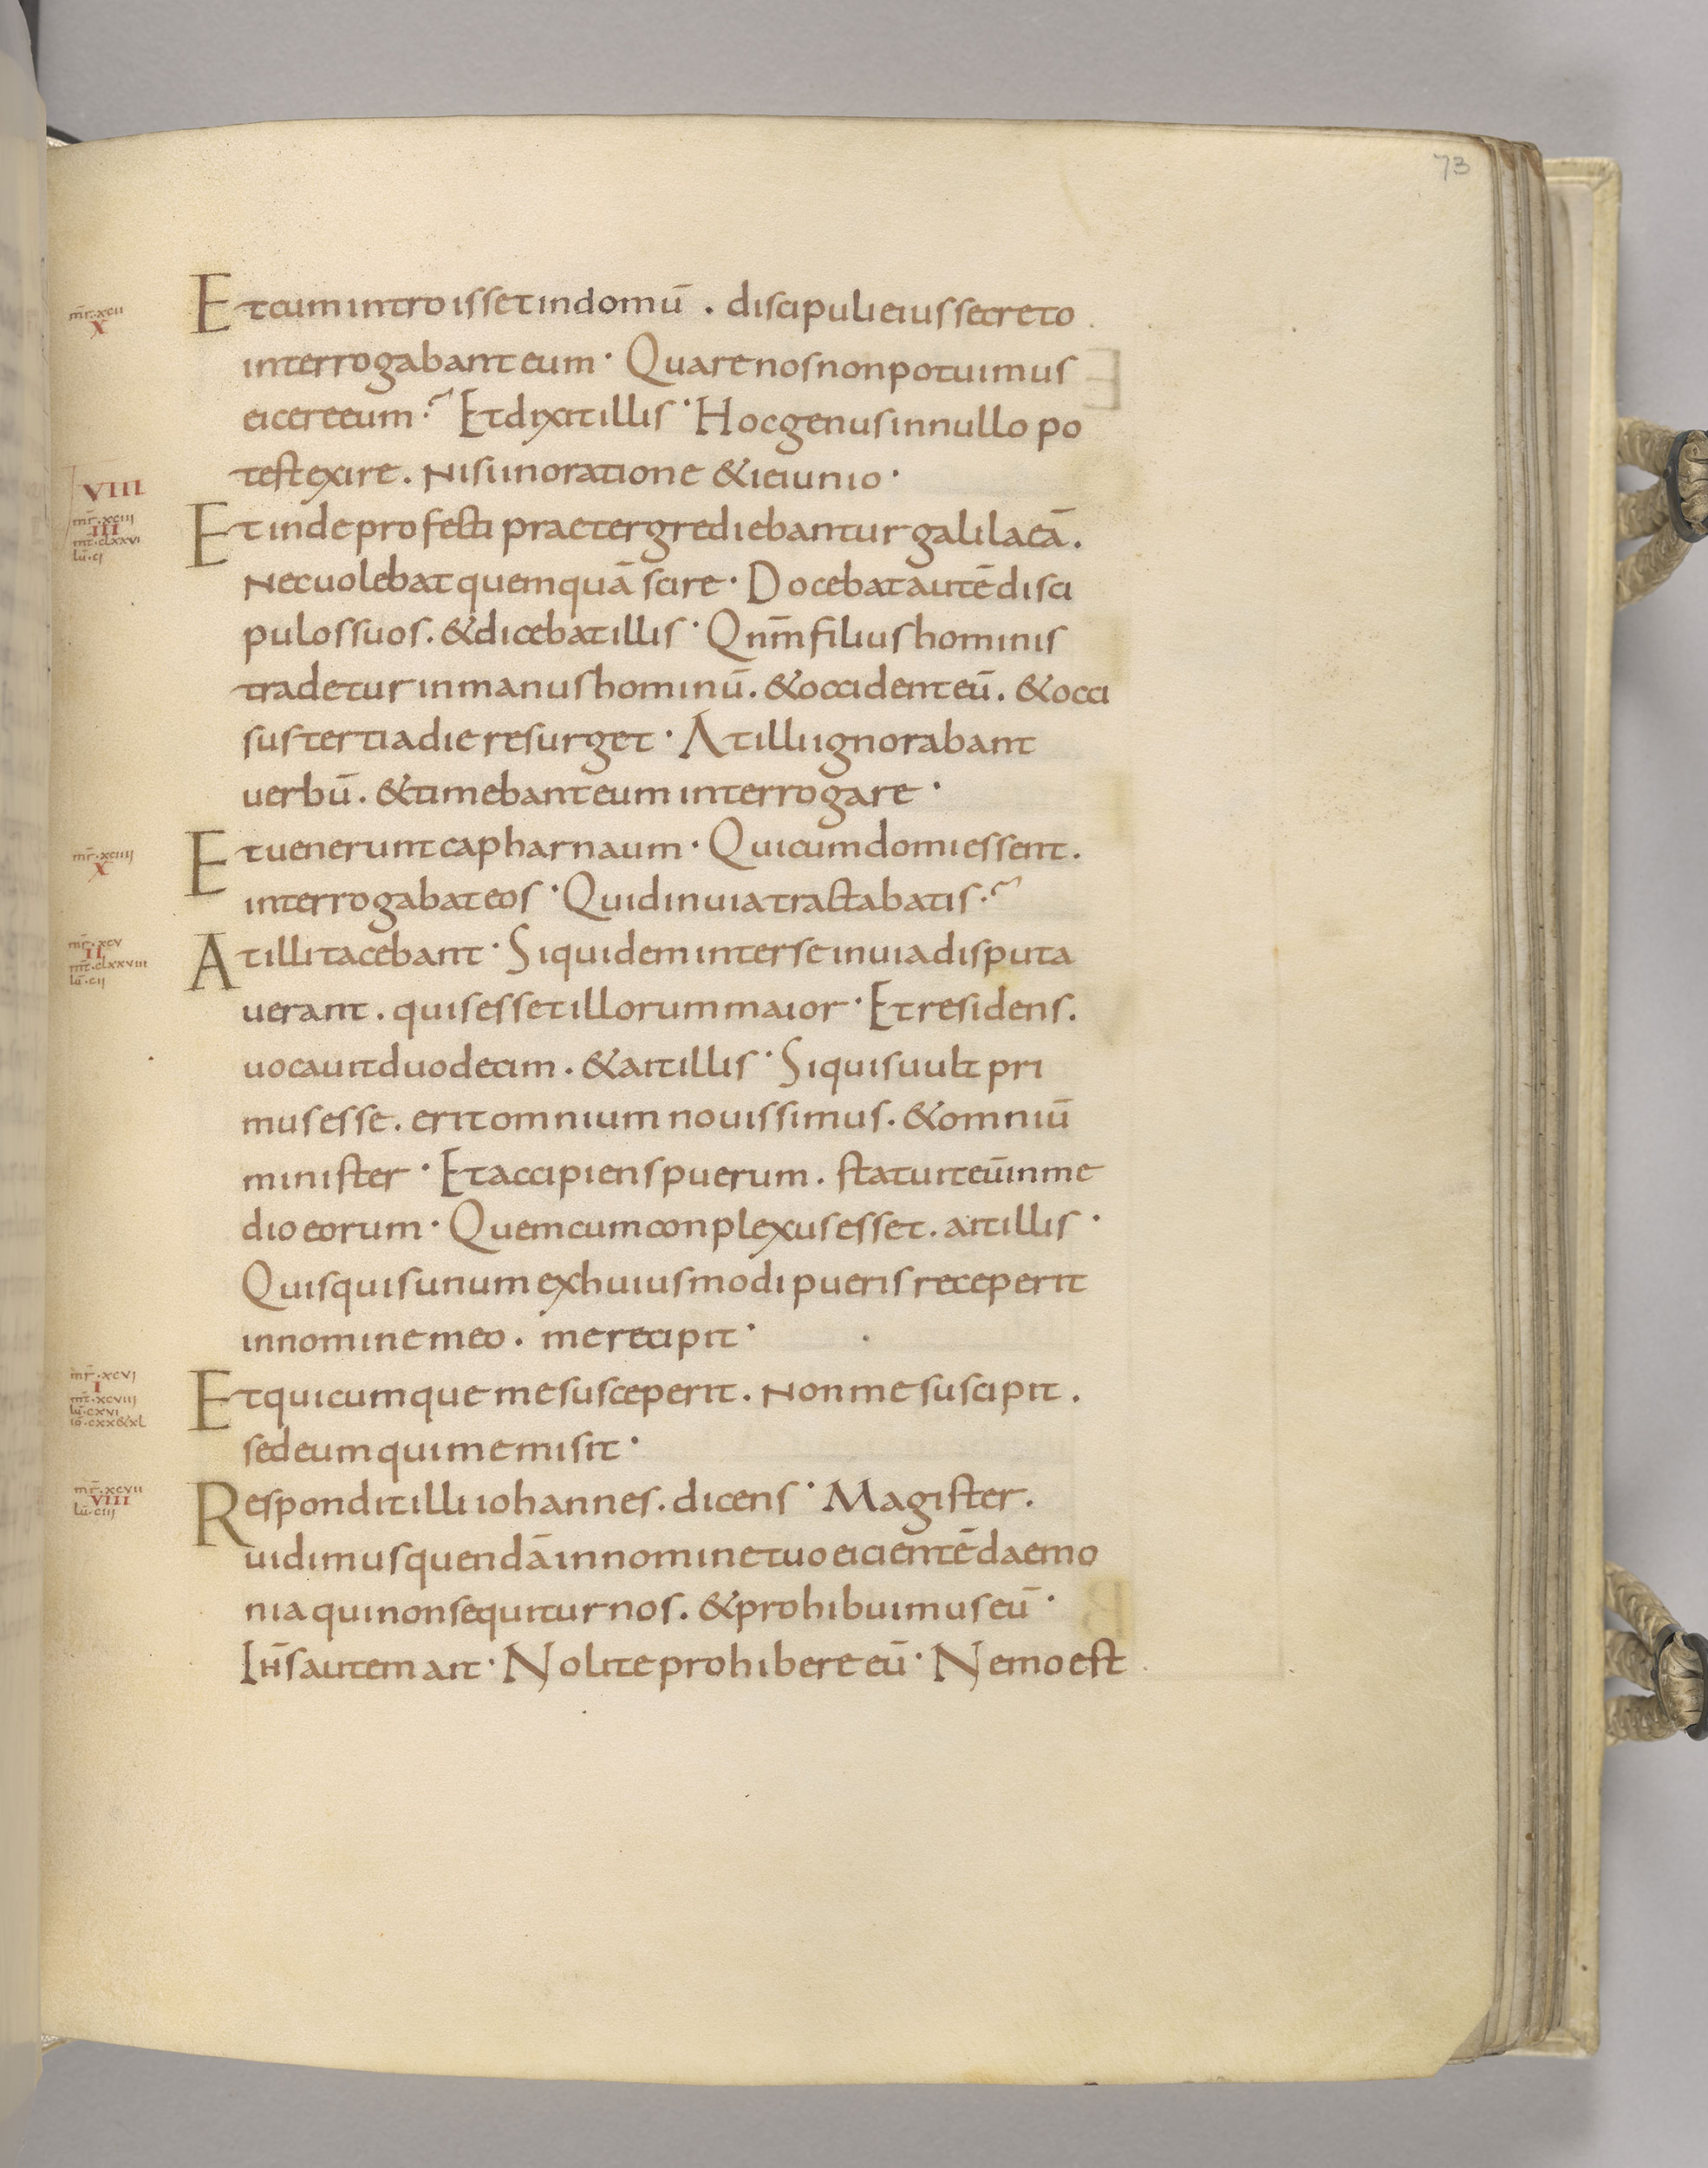 73
mr̄·xcii
X
Et cum introisset in domū . discipuli eius secreto
interrogabant eum · Quare nos non potuimus
eicere eum ·? Et dixit illis · Hoc genus in nullo po
test exire . Nisi in oratione & ieiunio ·
VIII
mr̄·xciii
III
mt̄·clxxvi
lū·ci
Et inde profecti praetergrediebantur galilaeā .
Nec uolebat quemquā scire · Docebat autē disci
pulos suos . & dicebat illis · Qnm̄ filius hominis
tradetur in manus hominū . & occident eū . & occi
sus tertia die resurget · At illi ignorabant
uerbū . & timebant eum interrogare ·
mr̄·xciiii
X
Et uenerunt capharnaum · Qui cum domi essent .
interrogabat eos · Quid in uia tractabatis ·?
mr̄·xcv
II
mt̄·clxxviii
lū·cii
At illi tacebant · Siquidem inter se in uia disputa
uerant . quis esset illorum maior · Et residens .
uocauit duodecim . & ait illis · Si quis uult pri
mus esse . erit omnium nouissimus . & omniū
minister · Et accipiens puerum . statuit eū in me
dio eorum · Quem cum conplexus esset . ait illis ·
Quisquis unum ex huiusmodi pueris receperit
in nomine meo . me recipit ·
mr̄·xcvi
I
mt̄·xcviii
lū·cxvi
iō·cxx&xl
Et quicumque me susceperit . Non me suscipit .
sed eum qui me misit ·
mr̄·xcvii
VIII
lū·ciii
Respondit illi iohannes . dicens · Magister .
uidimus quendā in nomine tuo eicientē daemo
nia qui non sequitur nos . & prohibuimus eū ·
Ihs̄ autem ait · Nolite prohibere eū · Nemo est